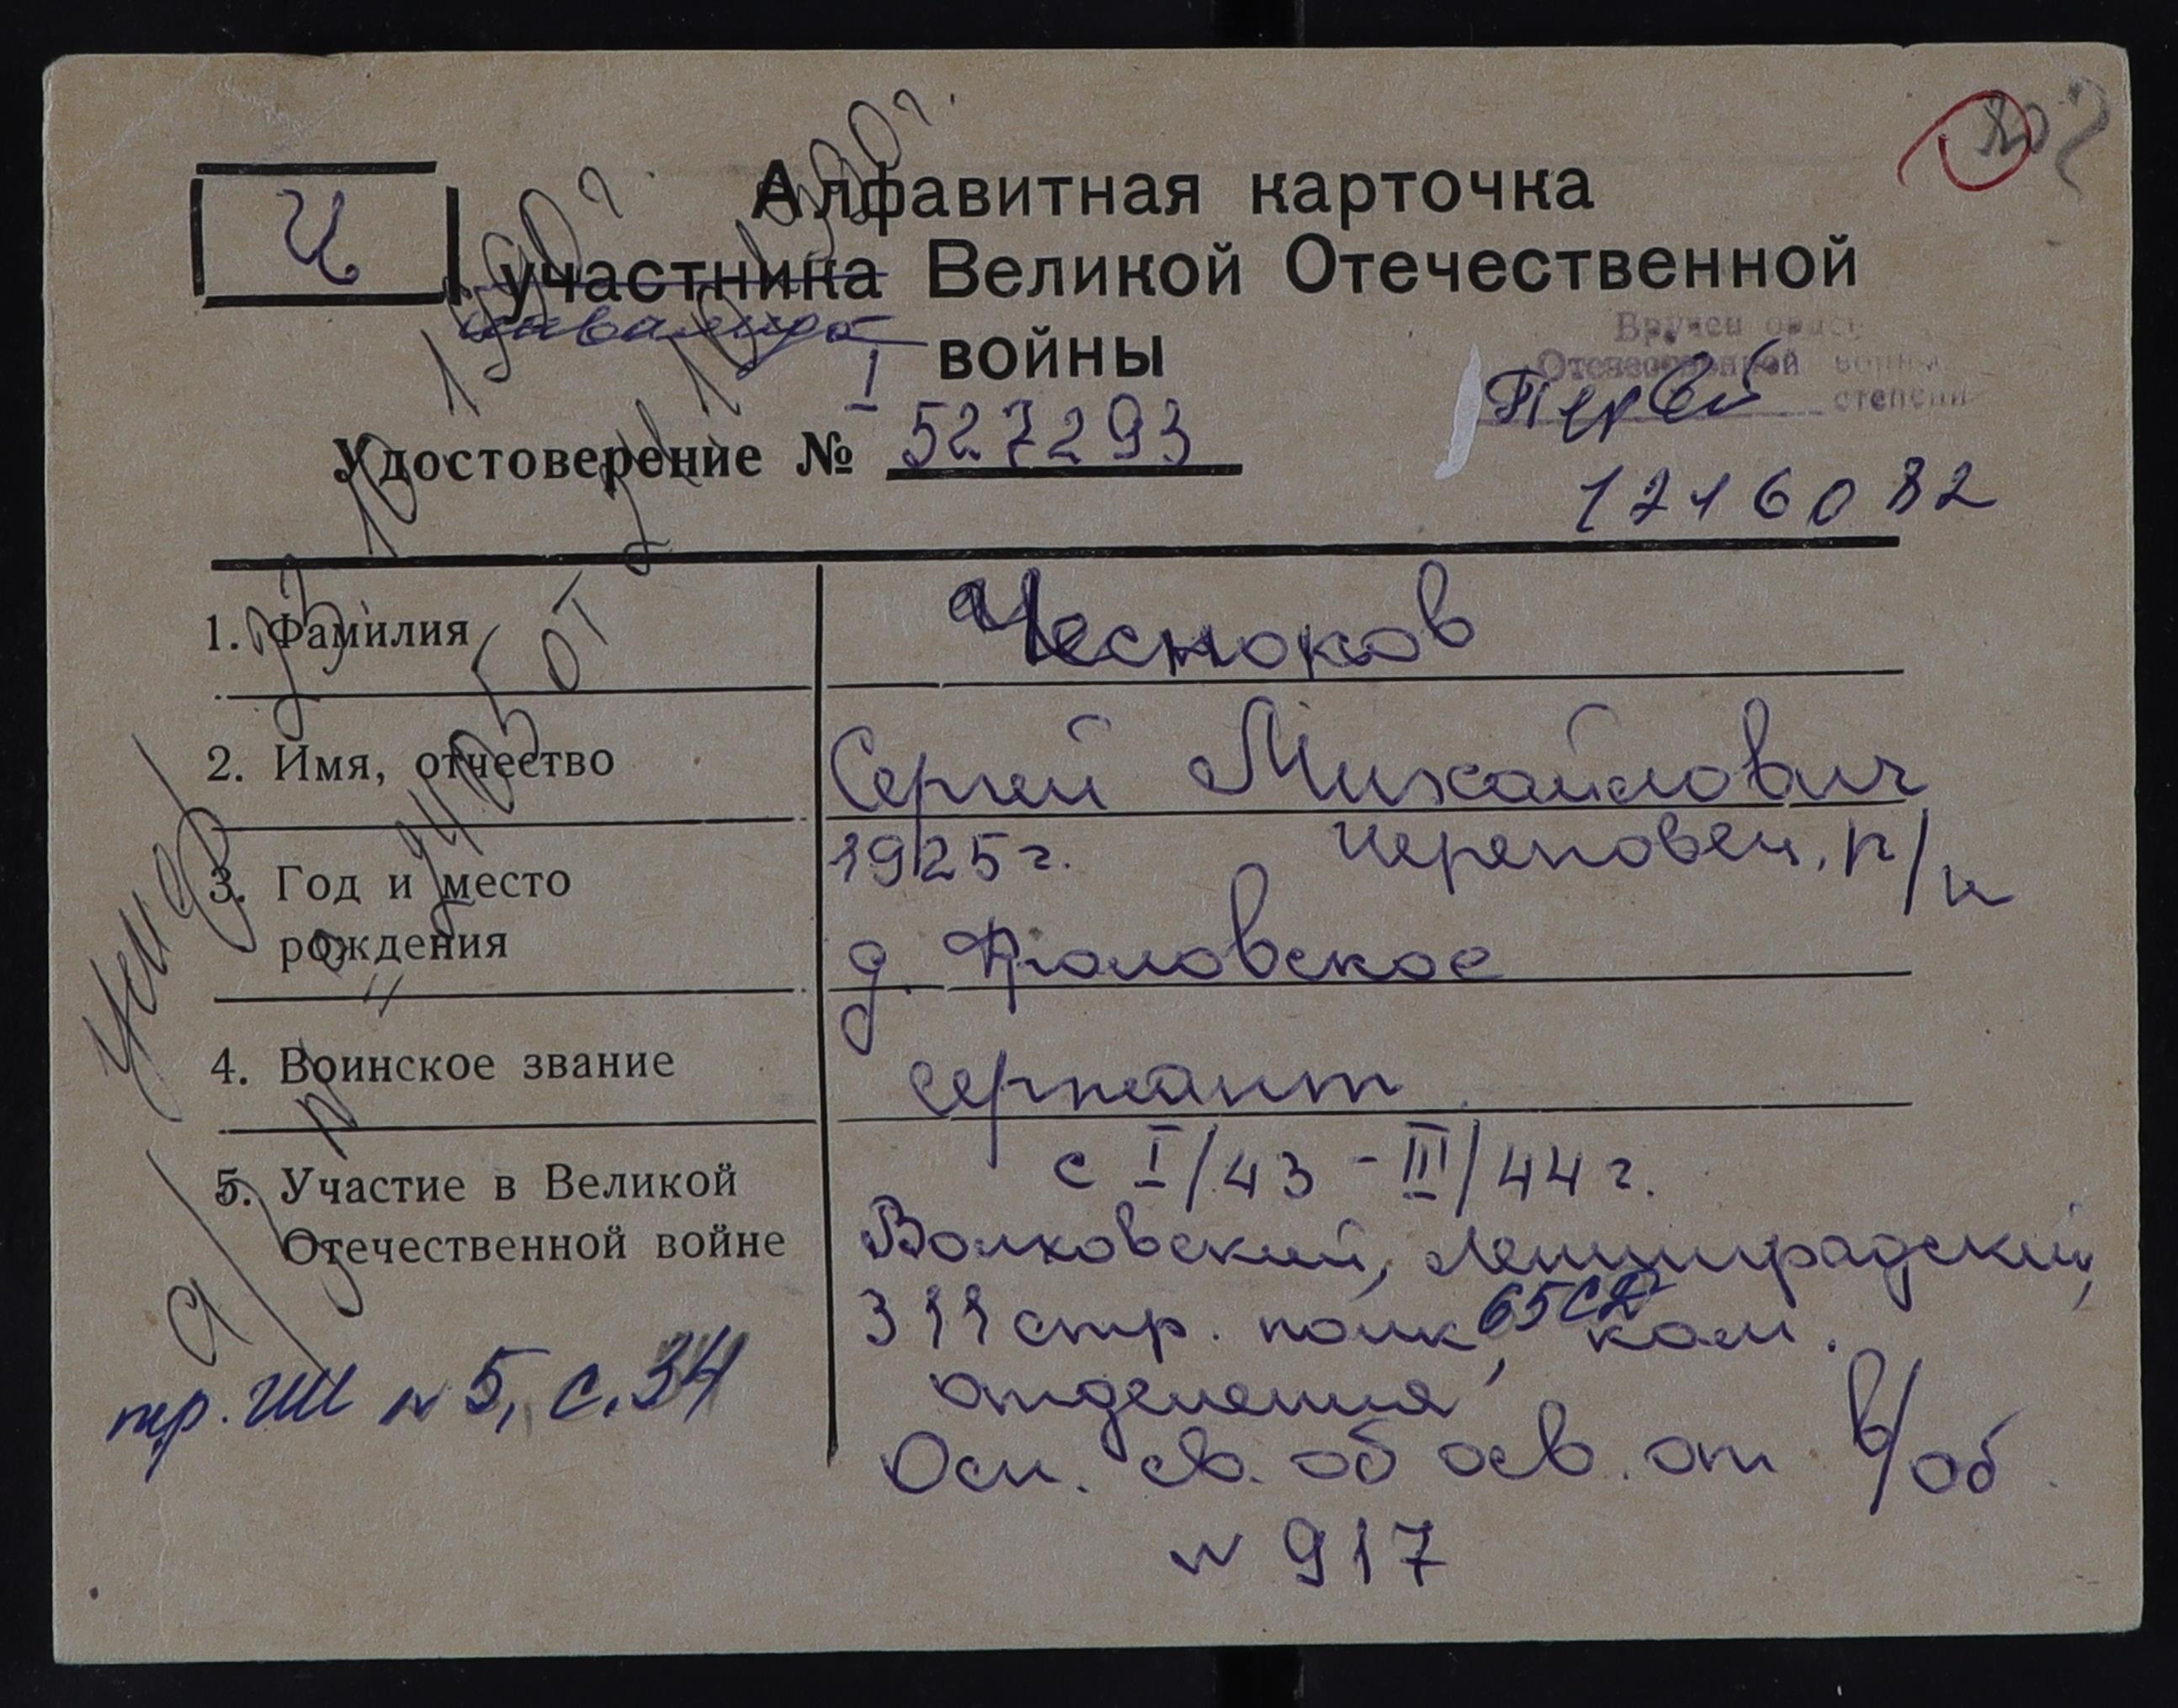 Ч
Алфавитная карточка
участника Великой Отечественной
инвалида войны
Вручен орден
Отечественной войны
Первой степени
I
Удостоверение № 527293
1216082
1. Фамилия Чесноков
2. Имя, отчество Сергей Михайлович
3. Год и место рождения 1925 г. Черповец. р/н
д. Фроловское
4. Воинское звание сержант
5. Участие в Великой Отечественной войне с I/43 - III/44 г.
Волховский, Ленинградский,
311 стр. полк, 65 СД ком.
отделения
Осн. св. об осв. от в/об.
N 917
Умер
10 1990 г.
от 1990 г.
пр. № 5, с. 34